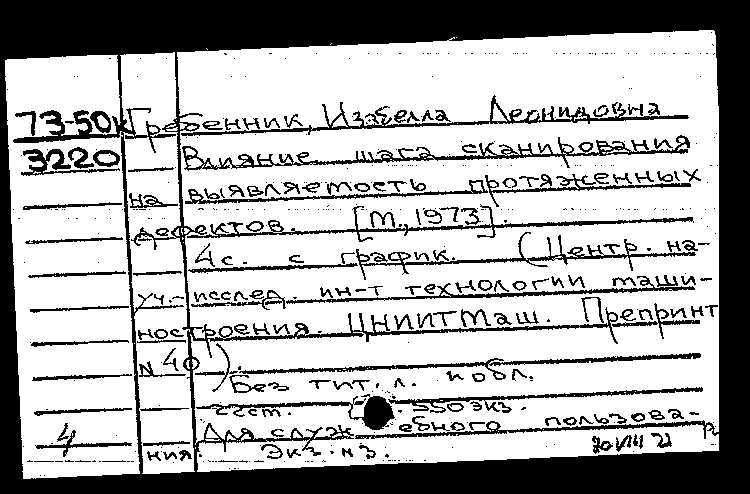 73-50к Гребенник, Изабелла Леонидовна
3220 Влияние шага сканирования
на выявляемость протяженных
дефектов. [М., 1973].
4 с. с график. (Центр. на-
уч.-исслед. ин-т технологии маши-
ностроения. ЦНИИТМаш. Препринт
N 40).
Без тит. л. и обл.
550 экз.
4 Для служебного пользова-
ния. Экз. н 3.